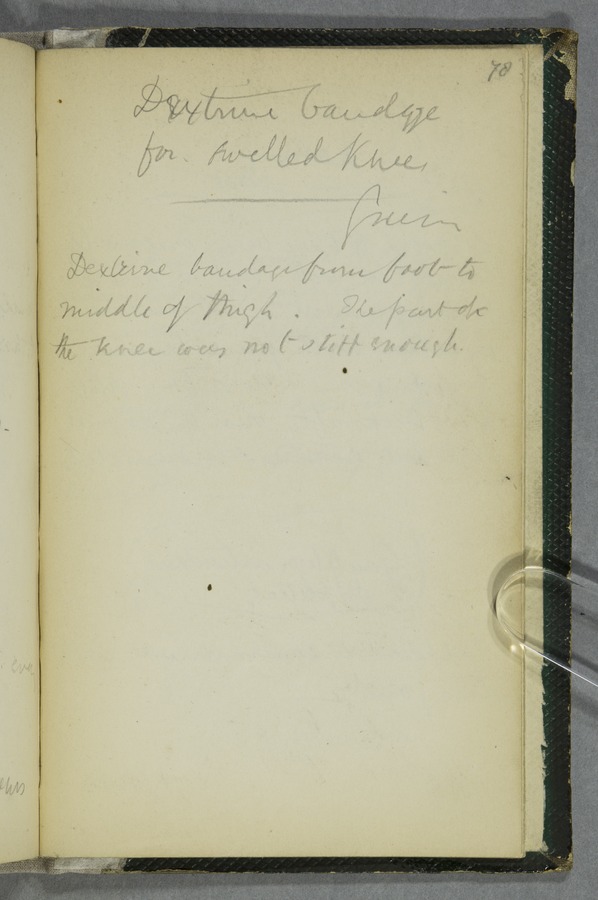 78
Dextrine bandage
for swelled Knee
Dextrine bandage from foot to
middle of thigh. The part of
the knee was not stiff enough.